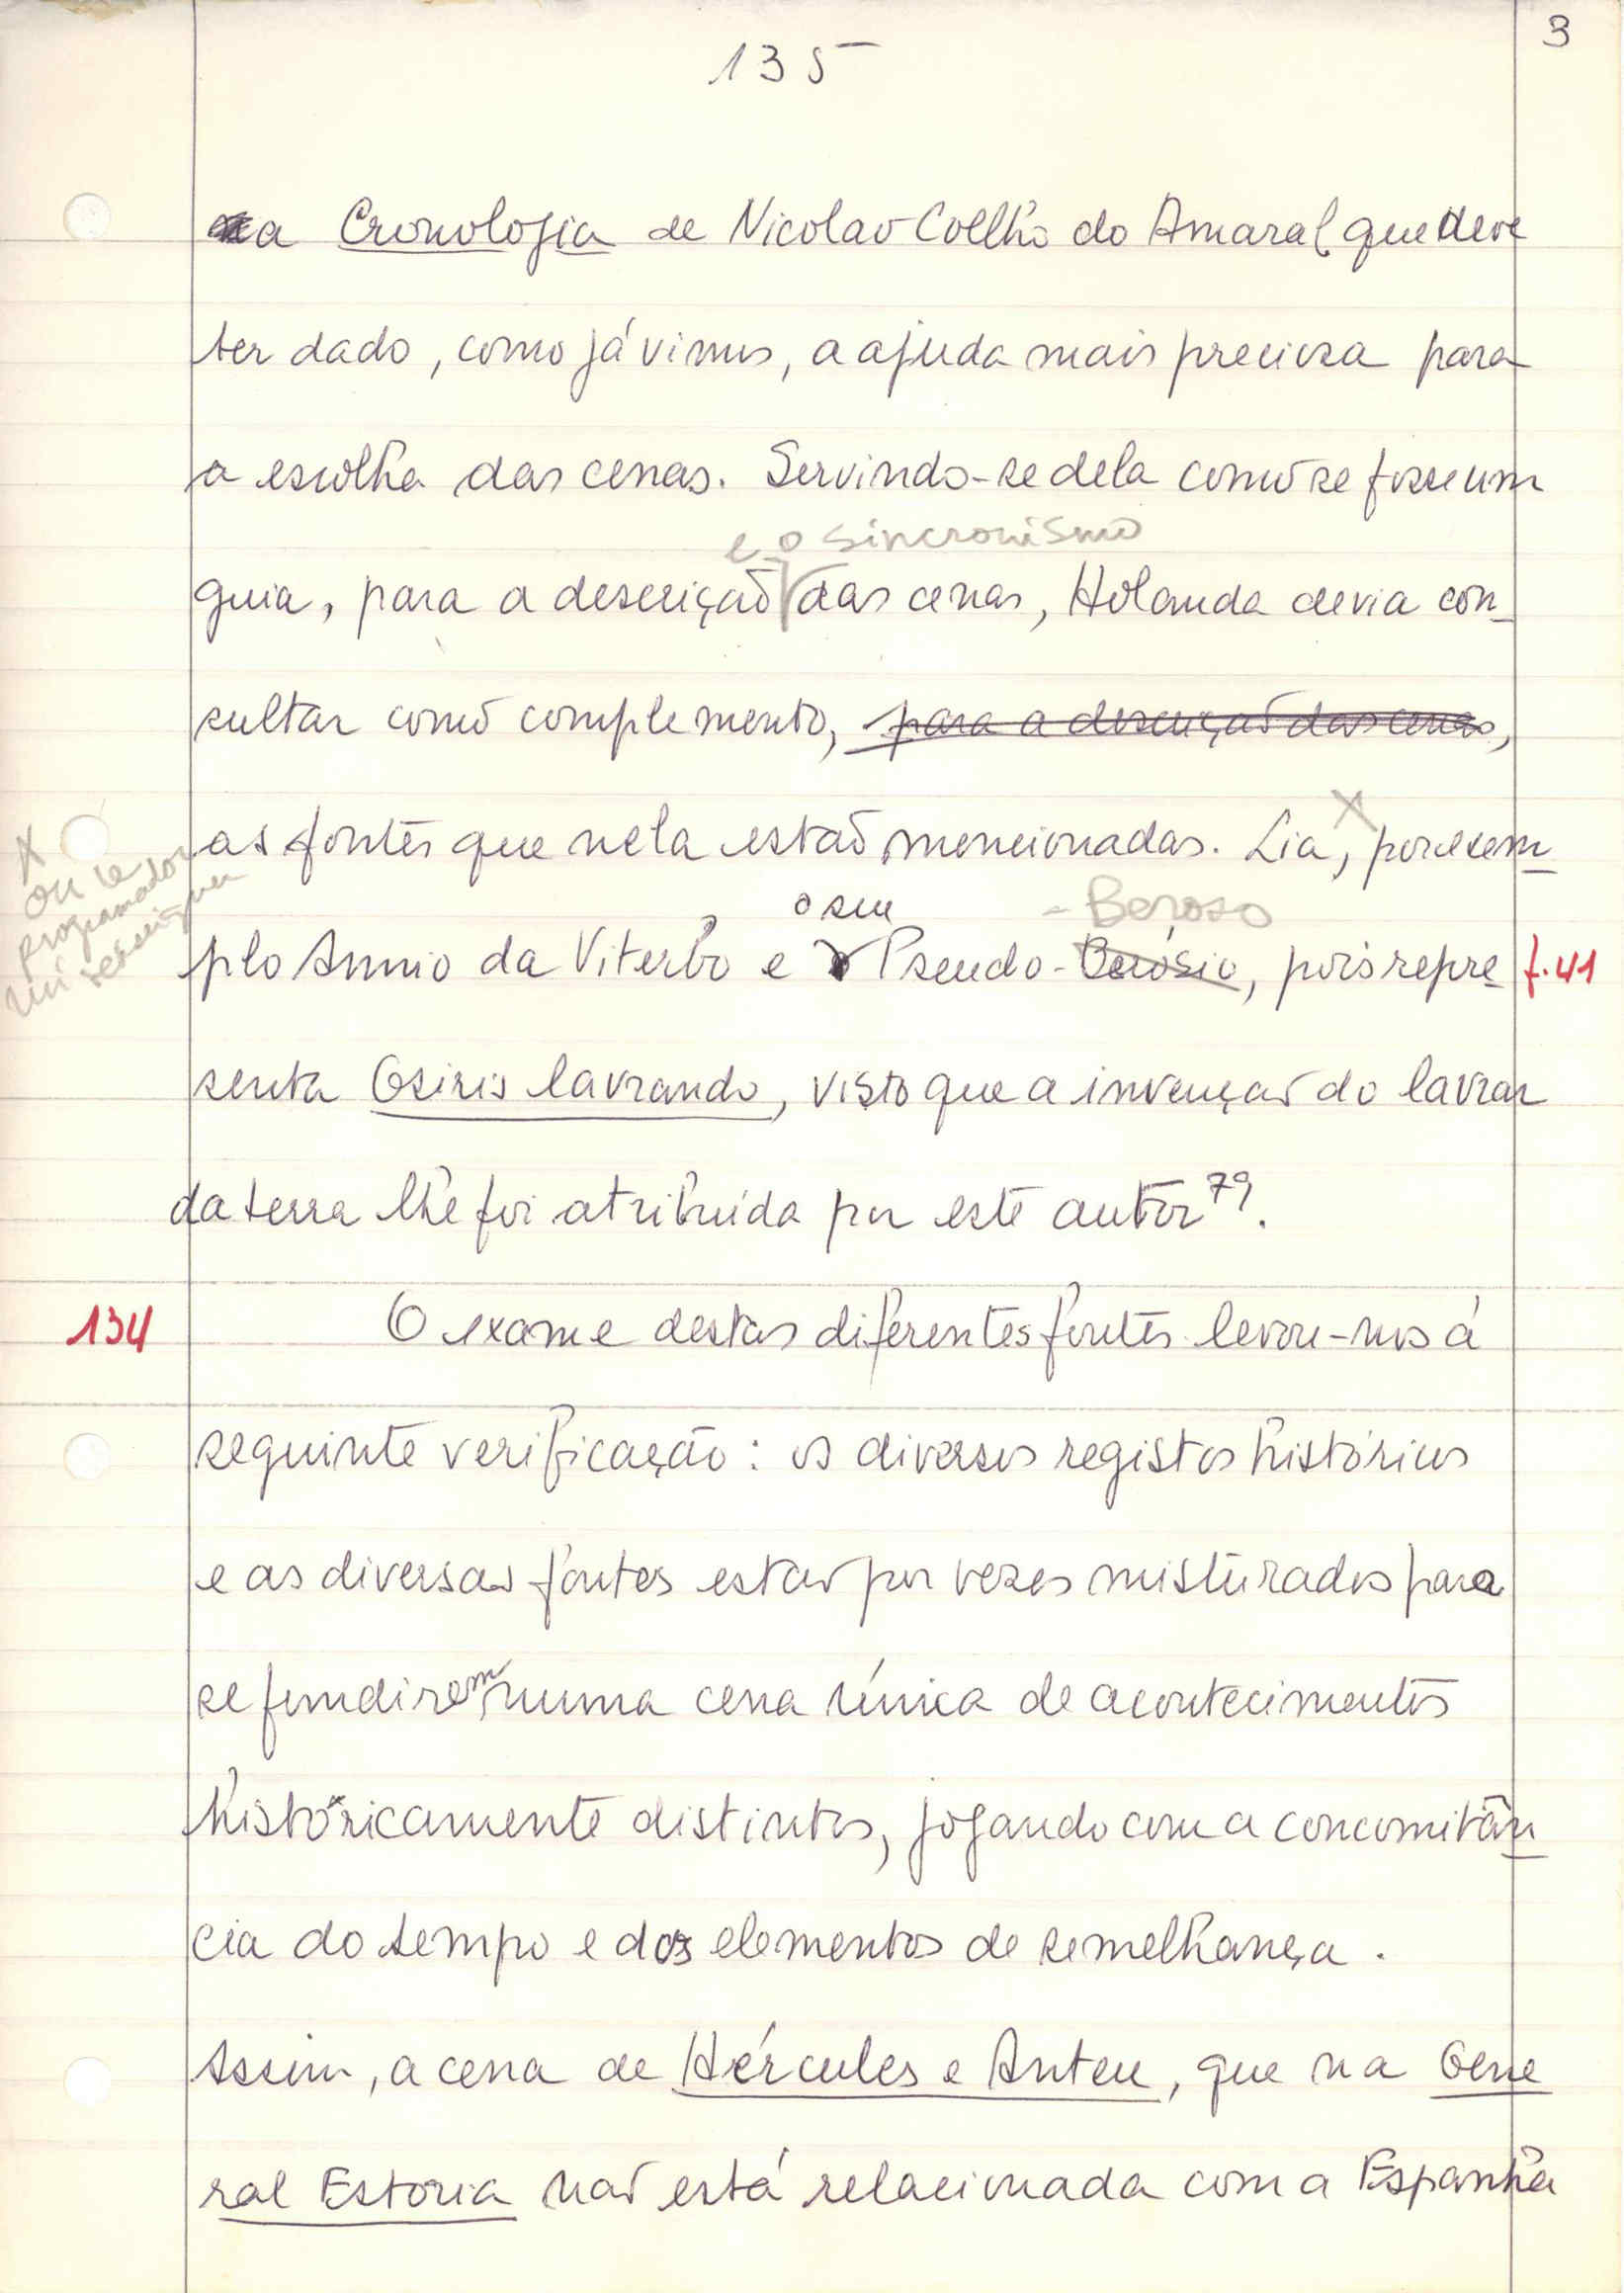 3
135
a Cronologia de Nicolao Coelho do Amaral que deve
ter dado, como já vimos, a ajuda mais preciosa para
a escolha das cenas. Servindo-se dela como se fosse um
e o sincronismo
guia, para a descrição das cenas, Holanda devia con-
sultar como complemento, para a descrição das cenas,
as fontes que nela estão mencionadas. Lia, X por exem-
X ou le programador
o seu - Beroso
plo Annio da Viterbo e o Pseudo-Berósio, pois repre- f. 41
senta Osiris lavrando, visto que a invenção do lavrar
da terra lhe foi atribuída por este autor 79.
134 O exame destas diferentes fontes levou-nos à
seguinte verificação: os diversos registos históricos
e as diversas fontes estão por vezes misturados para
se fundirem numa cena única de acontecimentos
històricamente distintos, jogando com a concomitân-
cia do tempo e dos elementos de semelhança.
Assim, a cena de Hércules e Anteu, que na Gene-
ral Estoria não está relacionada com a Espanha